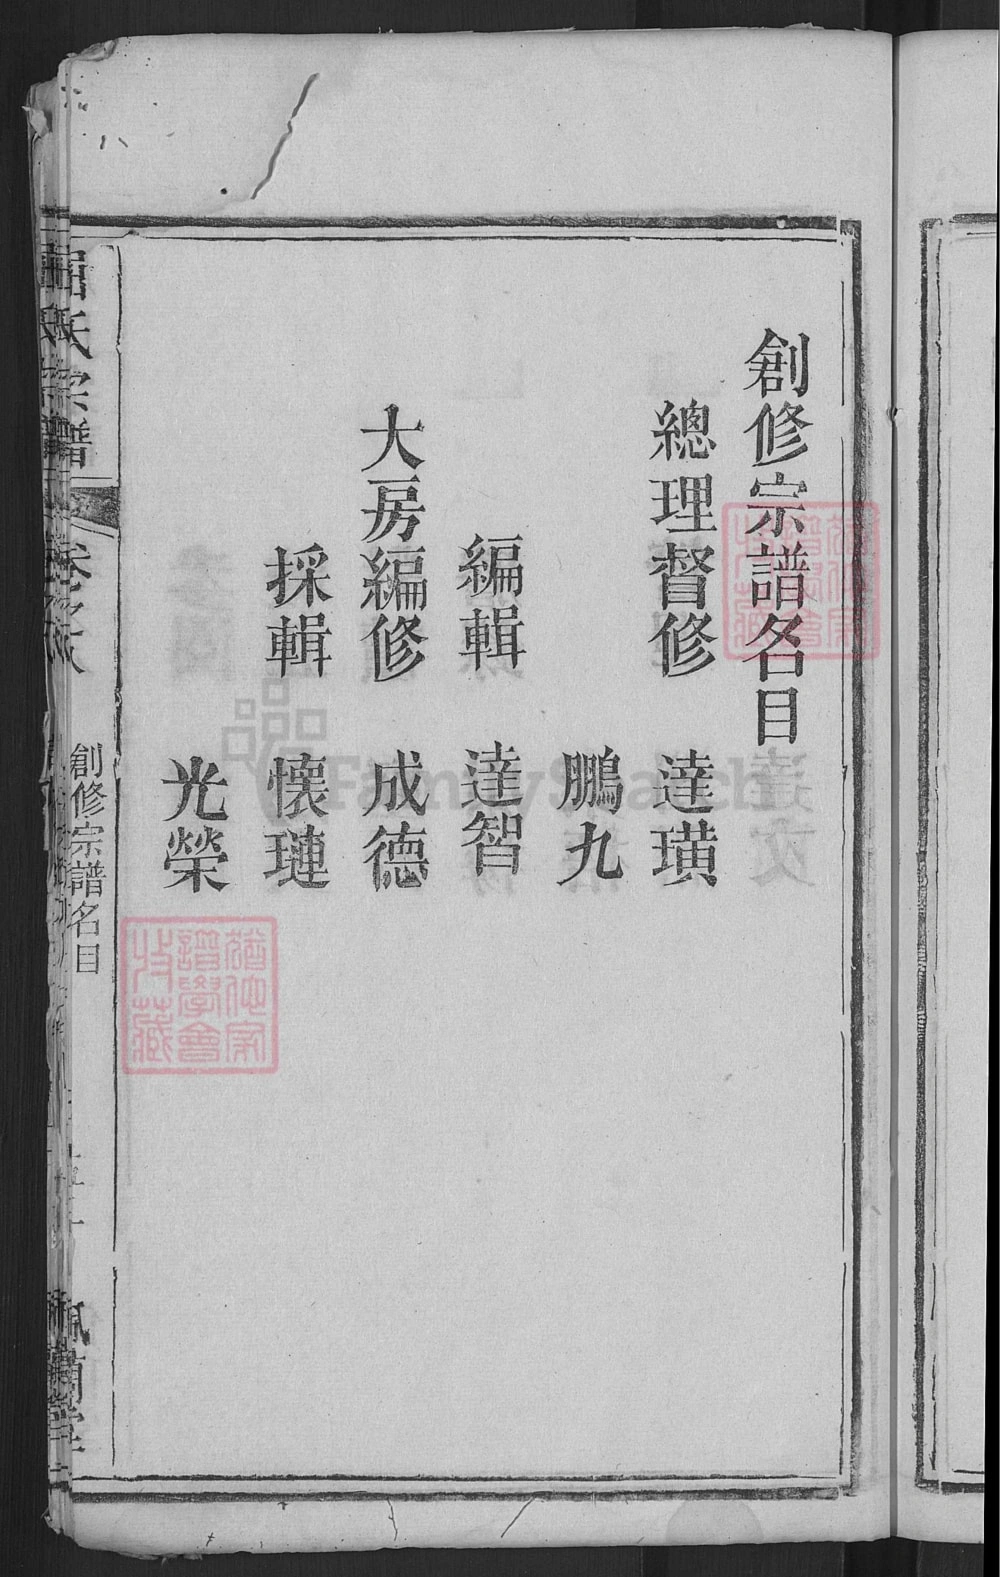 創修宗譜名目
總理督修 達璜
鵬九
編輯 達智
大房編修 成德
採輯 懷璉
光榮
屈氏宗譜 卷之 創修宗譜名目 佩蘭堂
譜學會
藏
譜學會
藏
FamilySearch